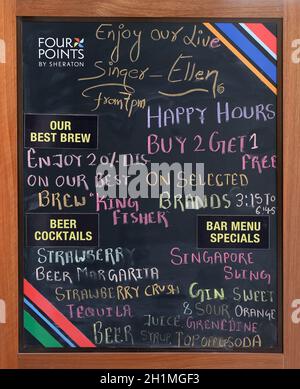 FOUR
POINTS
BY SHERATON
Enjoy our Live
Singer - Ellen
from 7pm
HAPPY HOURS
BUY 2 GET 1
FREE
ON SELECTED
BRANDS 3:15 TO
6:45
OUR
BEST BREW
ENJOY 20% DIS
ON OUR BEST
BREW "KING
FISHER
BEER
COCKTAILS
STRAWBERRY
BEER MARGARITA
STRAWBERRY CRUSH
TEQUILA
BEER
BAR MENU
SPECIALS
SINGAPORE
SLING
GIN SWEET
& SOUR ORANGE
JUICE GRENEDINE
SYRUP TOP OF SODA
alamy
Image ID: 2H1MGF3
www.alamy.com